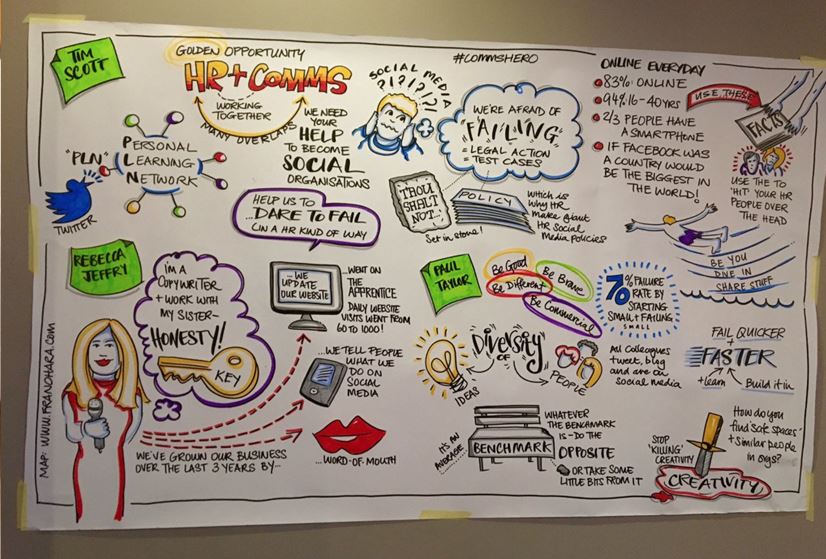 TIM
SCOTT
GOLDEN OPPORTUNITY
HR + COMMS
WORKING
TOGETHER
MANY OVERLAPS
"PLN"
PERSONAL
LEARNING
NETWORK
TWITTER
WE NEED
YOUR
HELP
TO BECOME
SOCIAL
ORGANISATIONS
HELP US TO
DARE TO FAIL
(IN A HR KIND OF WAY)
#COMMSHERO
SOCIAL MEDIA
?!?!?!?!
WE'RE AFRAID OF
"FAILING"
= LEGAL ACTION
= TEST CASES
THOU
SHALT
NOT...
Set in stone!
POLICY
which is
why HR
make giant
HR Social
Media Policies
ONLINE EVERYDAY
83% ONLINE
94% 16-40 YRS
2/3 PEOPLE HAVE
A SMARTPHONE
IF FACEBOOK WAS
A COUNTRY WOULD
BE THE BIGGEST IN
THE WORLD!
USE THESE
FACTS
USE THE TO
'HIT' YOUR HR
PEOPLE OVER
THE HEAD
BE YOU
DIVE IN
SHARE STUFF
REBECCA
JEFFRY
I'M A
COPYWRITER
+ WORK WITH
MY SISTER-
HONESTY!
KEY
WE'VE GROWN OUR BUSINESS
OVER THE LAST 3 YEARS BY...
...WE
UPDATE
OUR WEBSITE
...WENT ON
THE
APPRENTICE
DAILY WEBSITE
VISITS WENT FROM
60 TO 1000!
...WE TELL PEOPLE
WHAT WE
DO ON
SOCIAL
MEDIA
...WORD-OF-MOUTH
MAP: WWW.FRANOHARA.COM
PAUL
TAYLOR
Be Good
Be Brave
Be Different
Be Commercial
70% FAILURE
RATE BY
STARTING
SMALL + FAILING
SMALL
DIVERSITY
OF
IDEAS
PEOPLE
All Colleagues
tweet, blog
and are on
social media
FAIL QUICKER
+
FASTER
+learn
Build it in
IT'S AN
AVERAGE
BENCHMARK
WHATEVER
THE BENCHMARK
IS - DO THE
OPPOSITE
OR TAKE SOME
LITTLE BITS FROM IT
STOP
'KILLING'
CREATIVITY
CREATIVITY
How do you
find 'safe spaces'
+ similar people
in orgs?